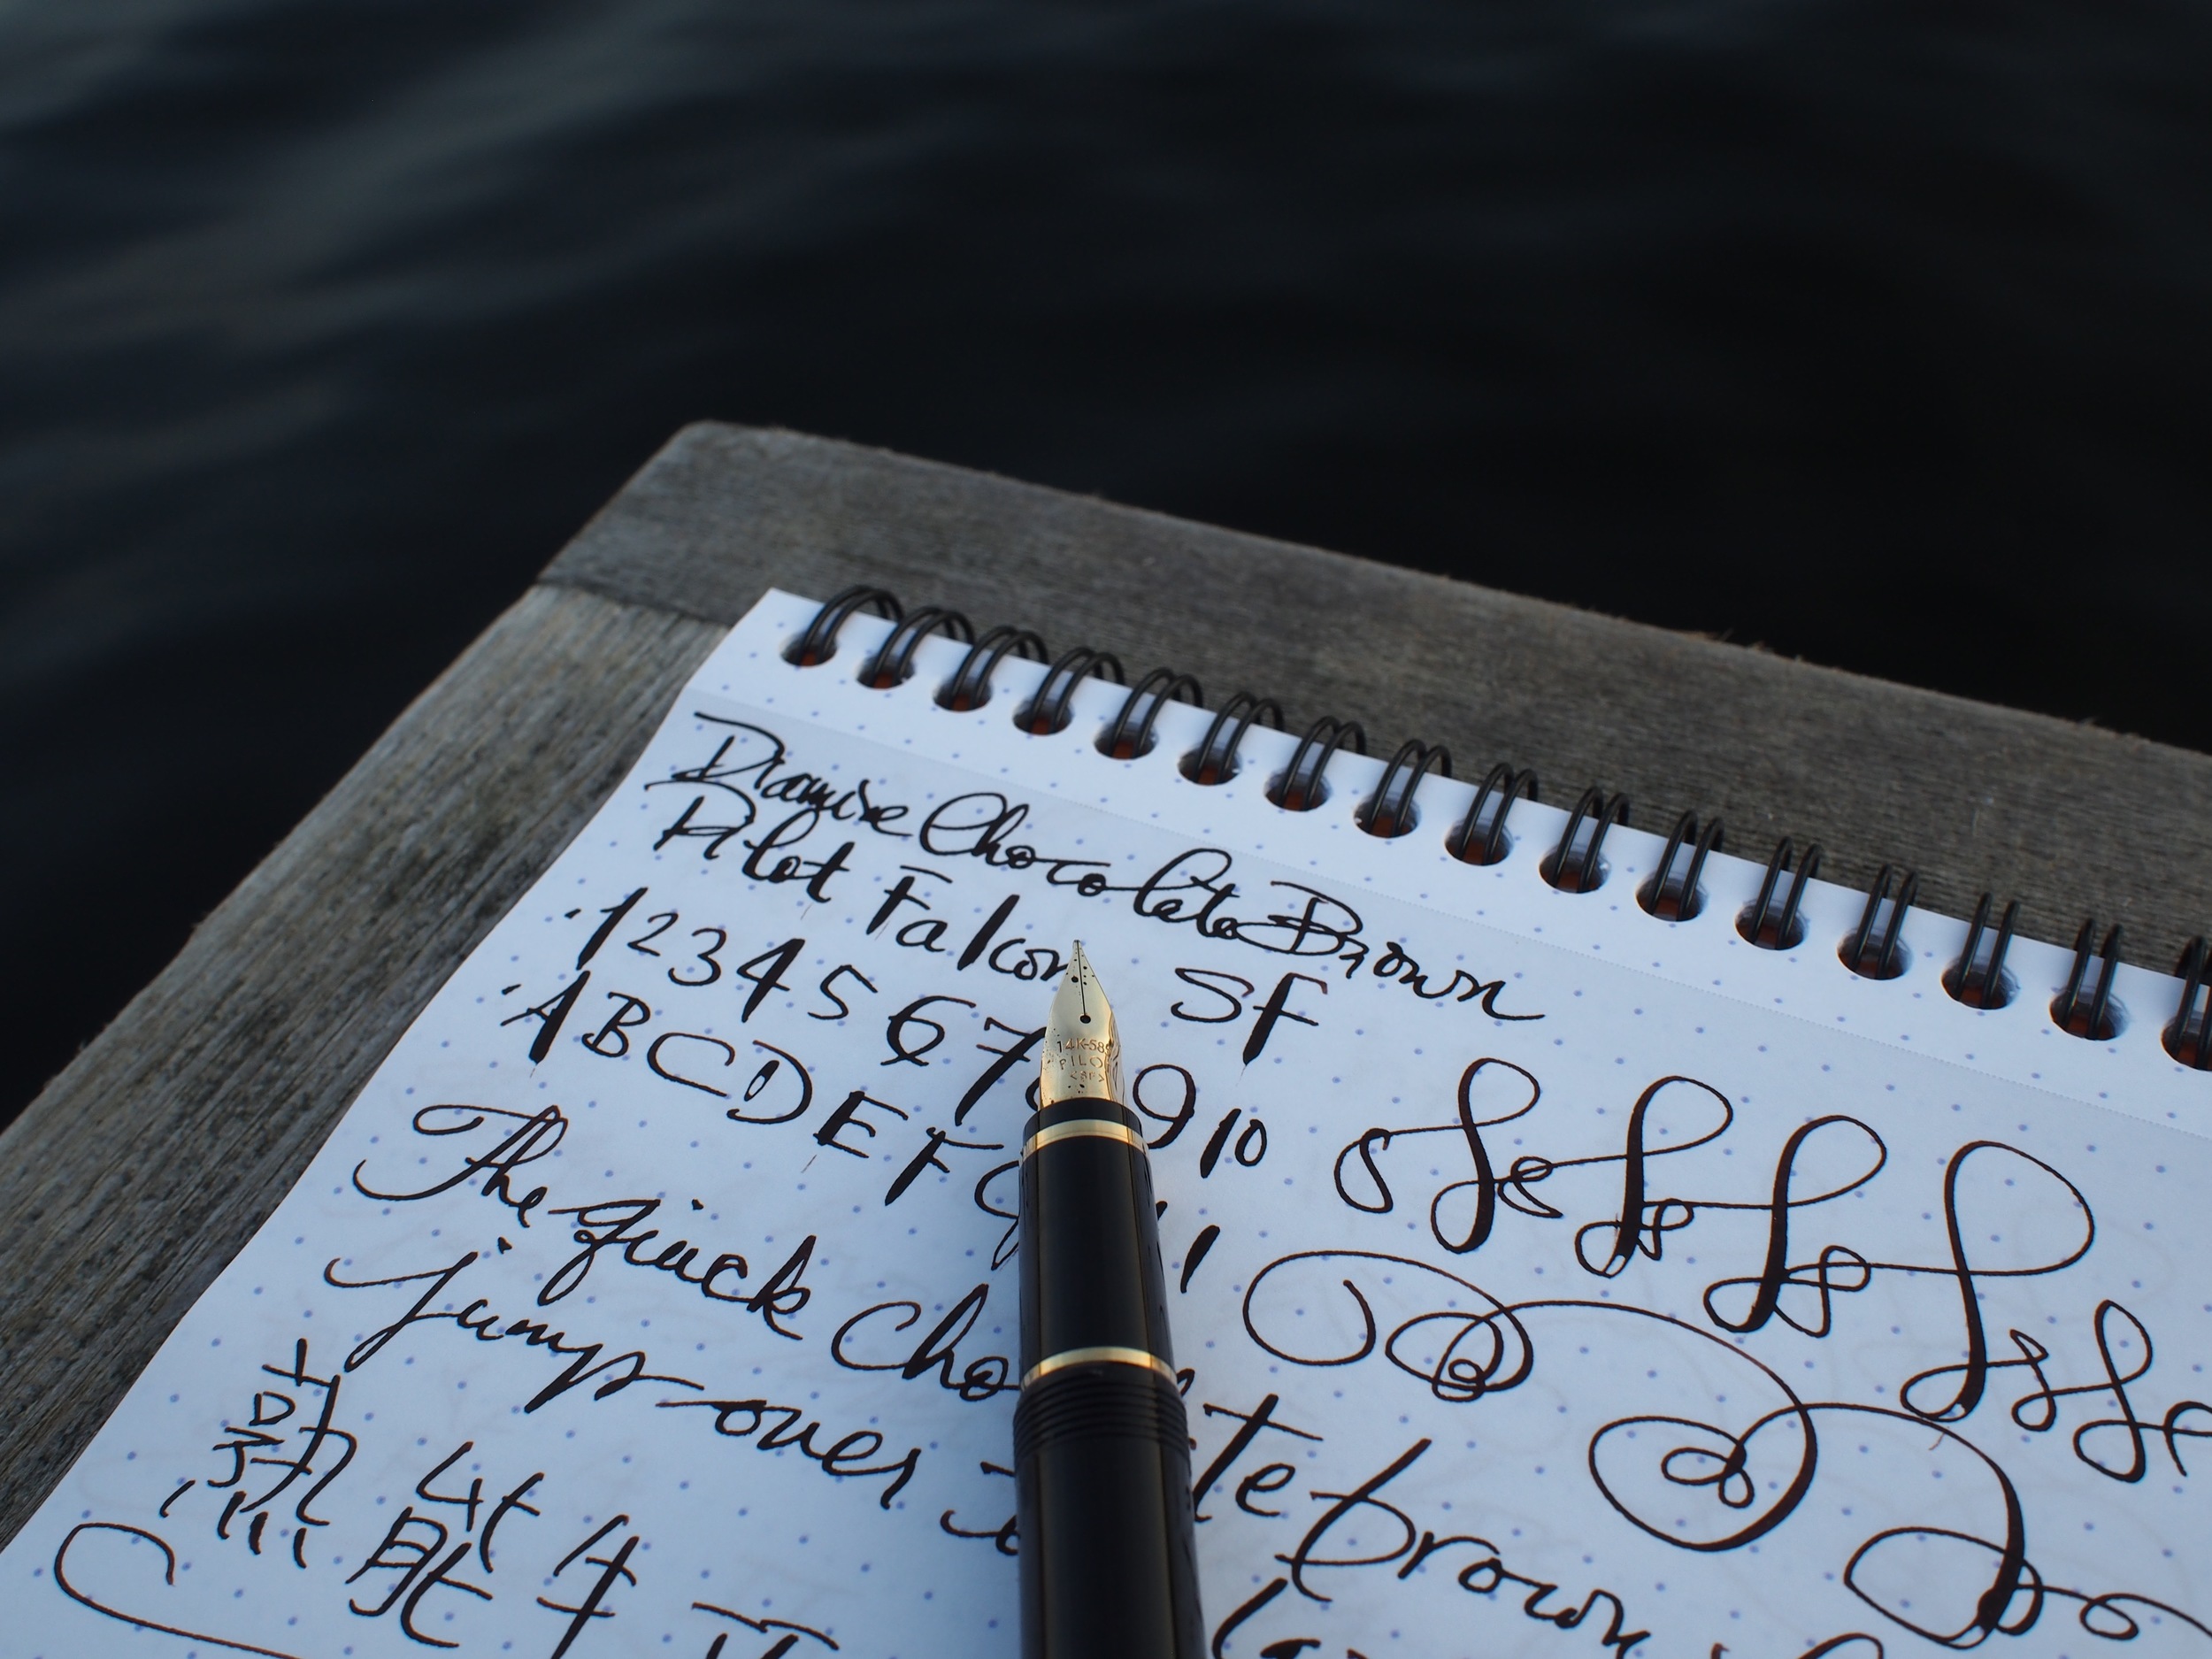 Diamine Chocolate Brown
Pilot Falcon SF
1 2 3 4 5 6 7 9 10
A B C D E F G
The quick Cho te brown
jump over
熱 能 牛
14K-585
PILOT
<SF>